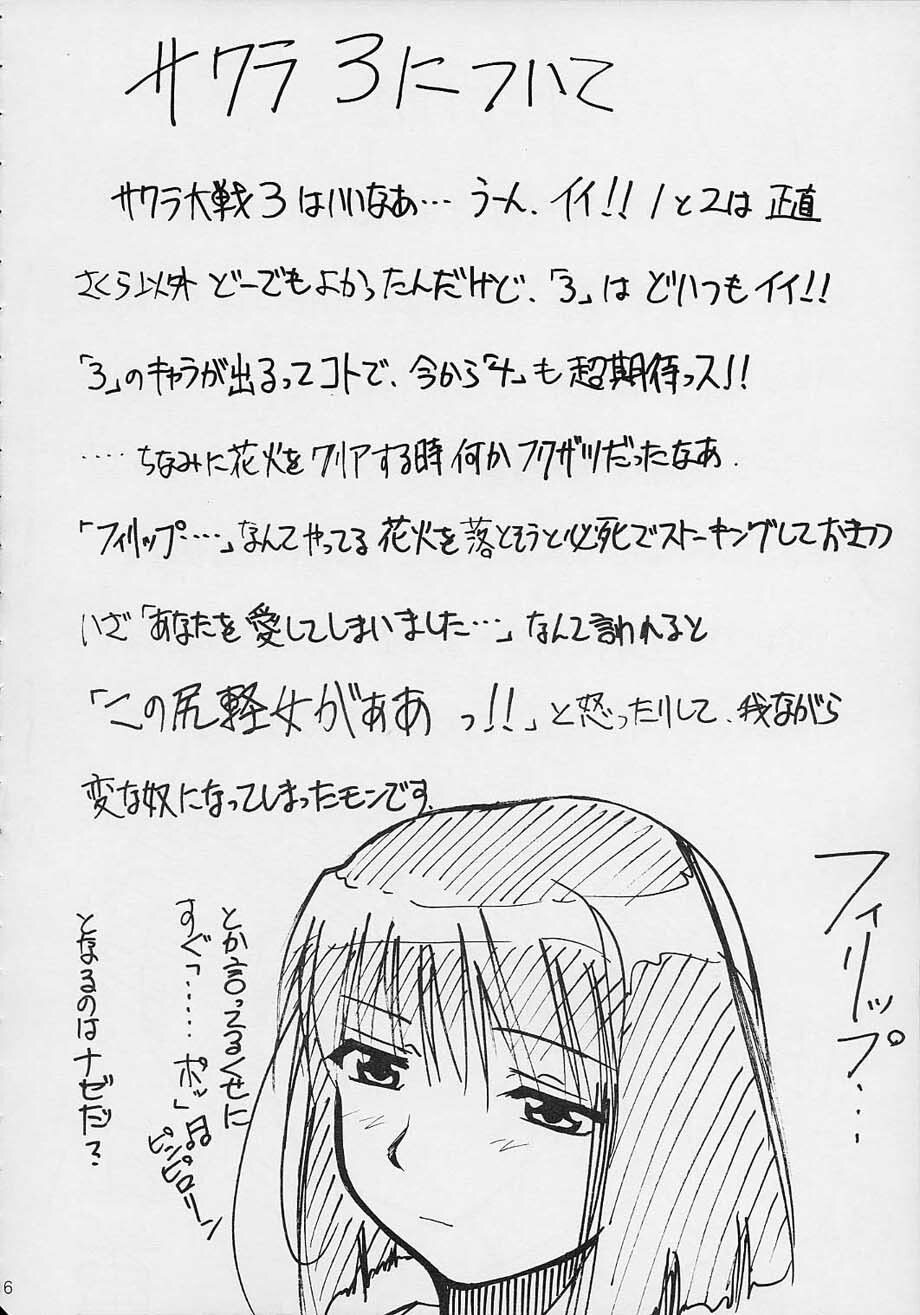 サクラ3について
サクラ大戦3はいいなあ…うーん、イイ!!1と2は正直
さくら以外どーでもよかったんだけど、「3」はどいつもイイ!!
「3」のキャラが出るってコトで、今から「4」も超期待っス!!
‥‥ちなみに花火をクリアする時何かフクザツだったなあ.
「フィリップ‥‥」なんてやってる花火を落とそうと必死でストーキングしておきつつ
いざ「あなたを愛してしまいました…」なんて言われると
「この尻軽女がぁああっ!!」と怒ったりして、我ながら
変な奴になってしまったモンです.
フィリップ‥‥
とか言ってるくせに
すぐ「‥‥‥ポッ」♫
ピンピロリーン
となるのはナゼだ?
6